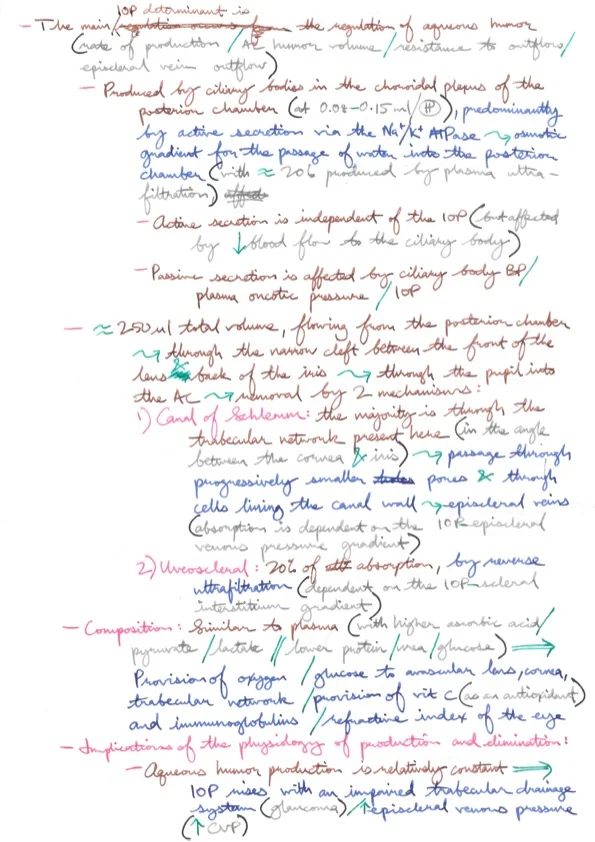 IOP determinant is
- The main / regulation occurs for the regulation of aqueous humor
(rate of production / AC humor volume / resistance to outflow /
episcleral vein outflow)
- Produced by ciliary bodies in the choroidal plexus of the
posterior chamber (at 0.08-0.15ml/), predominantly
by active secretion via the Na⁺/K⁺ ATPase ⇝ osmotic
gradient for the passage of water into the posterior
chamber (with ≈ 20% produced by plasma ultra-
filtration) affected
- Active secretion is independent of the IOP (but affected
by ↓ blood flow to the ciliary body)
- Passive secretion is affected by ciliary body BP /
plasma oncotic pressure / IOP
- ≈ 250 µl total volume, flowing from the posterior chamber
⇝ through the narrow cleft between the front of the
lens & back of the iris ⇝ through the pupil into
the AC ⇝ removal by 2 mechanisms:
1) Canal of Schlemm: the majority is through the
trabecular network present here (in the angle
between the cornea & iris) ⇝ passage through
progressively smaller pores & through
cells lining the canal wall ⇝ episcleral veins
(absorption is dependent on the IOP-episcleral
venous pressure gradient)
2) Uveoscleral: 20% of absorption, by reverse
ultrafiltration (dependent on the IOP-scleral
interstitium gradient)
- Composition: Similar to plasma (with higher ascorbic acid /
pyruvate / lactate // lower protein / urea / glucose) ⇒
Provision of oxygen / glucose to avascular lens, cornea,
trabecular network / provision of vit C (as an antioxidant)
and immunoglobulins / refractive index of the eye
- Implications of the physiology of production and elimination:
- Aqueous humor production is relatively constant ⇒
IOP rises with an impaired trabecular drainage
system (glaucoma) / ↑ episcleral venous pressure
(↑ CVP)